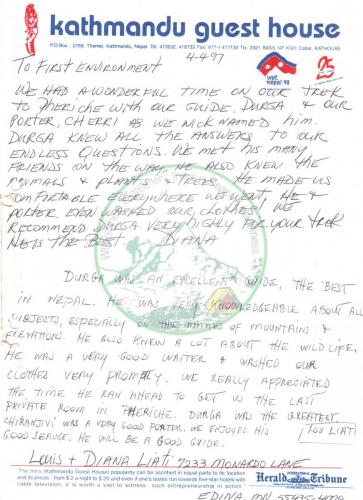 kathmandu guest house
P.O.Box : 2769, Thamel, Kathmandu, Nepal Tel: 413632, 418733 Fax: 977-1-417133 Tlx: 2321 BASS NP KGH Cable: KATHOUSE
4-4-97
TO FIRST ENVIRONMENT
VISIT NEPAL '98
25
WE HAD A WONDERFUL TIME ON OUR TREK
TO PHERICHE WITH OUR GUIDE. DURGA & OUR
PORTER, CHERRI AS WE NICK NAMED HIM.
DURGA KNEW ALL THE ANSWERS TO OUR
ENDLESS QUESTIONS. WE MET HIS MANY
FRIENDS ON THE WAY, HE ALSO KNEW THE
ANIMALS & PLANTS & TREES. HE MADE US
COMFORTABLE EVERYWHERE WE WENT, HE &
PORTER EVEN WASHED OUR CLOTHES, WE
RECOMMEND DURGA VERY HIGHLY FOR YOUR TREK
HE IS THE BEST DIANA
DURGA WAS AN EXELLENT GUIDE, THE BEST
IN NEPAL. HE WAS VERY KNOWLEDGEABLE ABOUT ALL
SUBJECTS, ESPECIALLY ON THE NAMES OF MOUNTAINS &
ELEVATIONS. HE ALSO KNEW A LOT ABOUT THE WILD LIFE,
HE WAS A VERY GOOD WAITER & WASHED OUR
CLOTHES VERY PROMPTLY. WE REALLY APPRECIATED
THE TIME HE RAN AHEAD TO GET US THE LAST
PRIVATE ROOM IN PHERICHE. DURGA WAS THE GREATEST
CHIRANJIVI WAS A VERY GOOD PORTER. WE ENJOYED HIS
LOU LIATI
GOOD SERVICE. HE WILL BE A GOOD GUIDE.
LOUIS & DIANA LIATI 7233 MONARDO LANE
The inn's (Kathmandu Guest House) popularity can be ascribed in equal parts to its location
and its prices - from $ 2 a night to $ 20 and even if one's tastes run towards five-star hotels with
cable television, it is worth a visit to witness such entrepreneurship in action
Herald Tribune
EDINA, MN